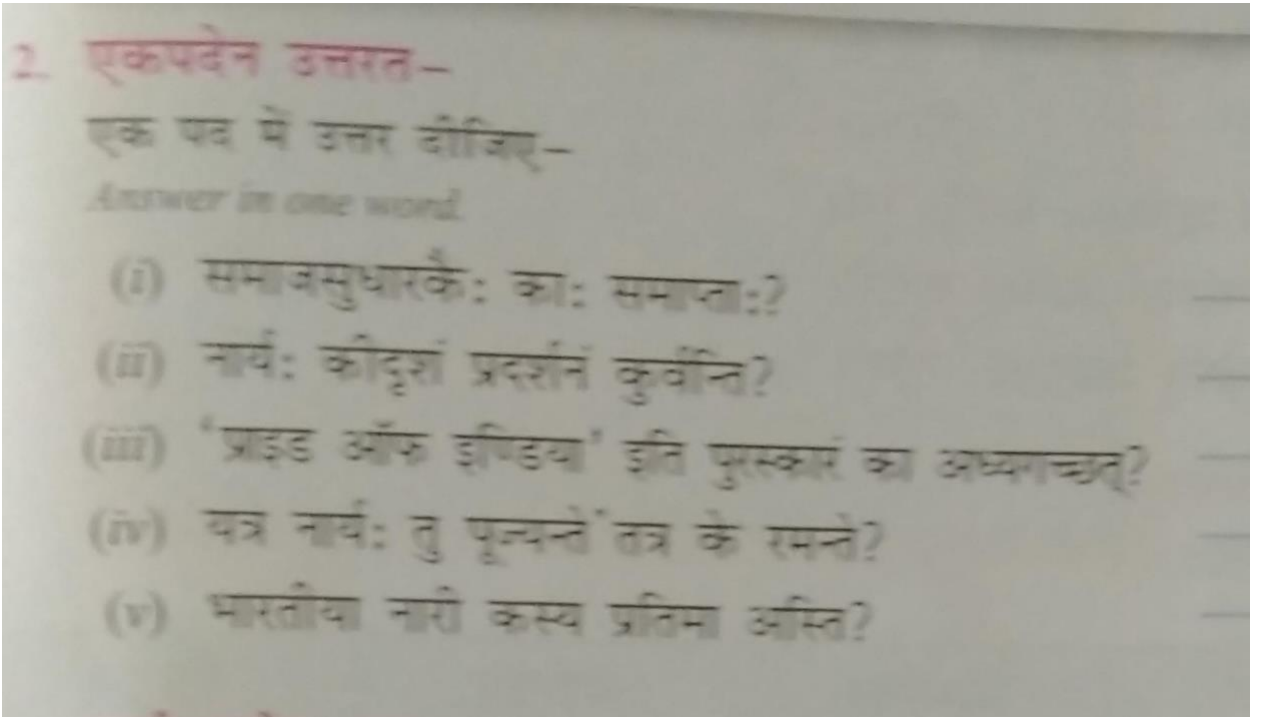 2. एकपदेन उत्तरत–
एक पद में उत्तर दीजिए–
Answer in one word.
(i) समाजसुधारकैः काः समाप्ताः?
(ii) नार्यः कीदृशं प्रदर्शनं कुर्वन्ति?
(iii) 'प्राइड ऑफ इण्डिया' इति पुरस्कारं का अध्यगच्छत्?
(iv) यत्र नार्यः तु पूज्यन्ते तत्र के रमन्ते?
(v) भारतीया नारी कस्य प्रतिमा अस्ति?